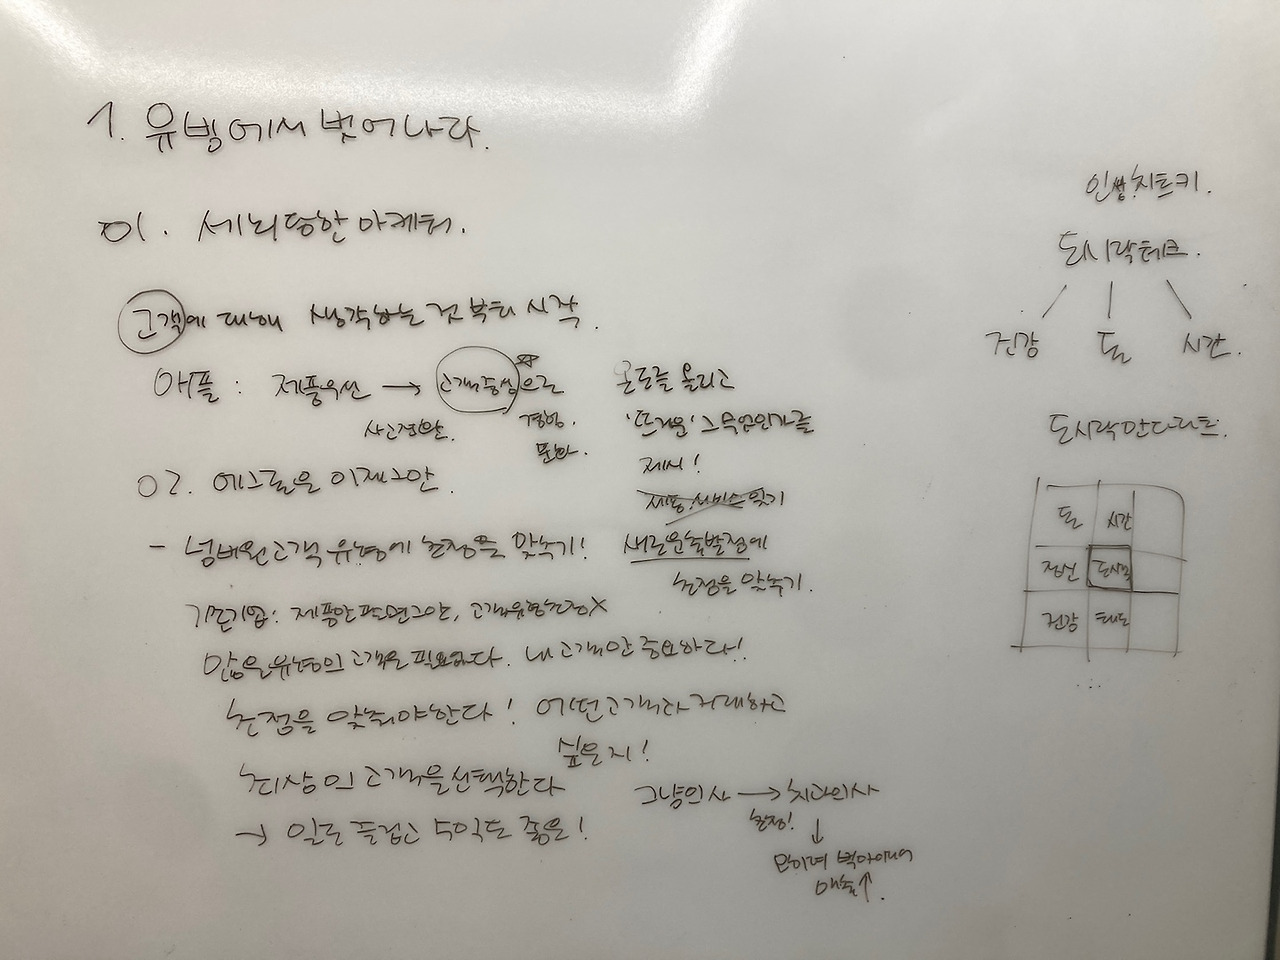 1. 유빙에서 벗어나라.
01. 세뇌당한 마케터.
고객에 대해 생각하는 것 부터 시작.
애플 : 제품우선 → 고객중심으로
사고전환. 경영. 문화.
온도를 올리고
'뜨거운' 그 무엇인가를
제시!
제품, 서비스 잊기
새로운 출발점에
초점을 맞추기.
02. 에스키모은 이제그만.
- 넘버원 고객 유형에 초점을 맞추기!
기존기업: 제품만 판다면그만, 고객유형초점X
많은유형의 고객은 필요없다. 내 고객만 중요하다!
초점을 맞춰야한다! 어떤고객과 거래하고
싶은지!
최상의 고객을 선택한다
→ 일도 즐겁고 수익도 좋은!
그냥의사 → 치과의사
초점!
↓
매출↑.
인생치트키.
도시락테크.
건강 돈 시간.
도시락만다라트.
돈 시간
정신 도시락
건강 태도